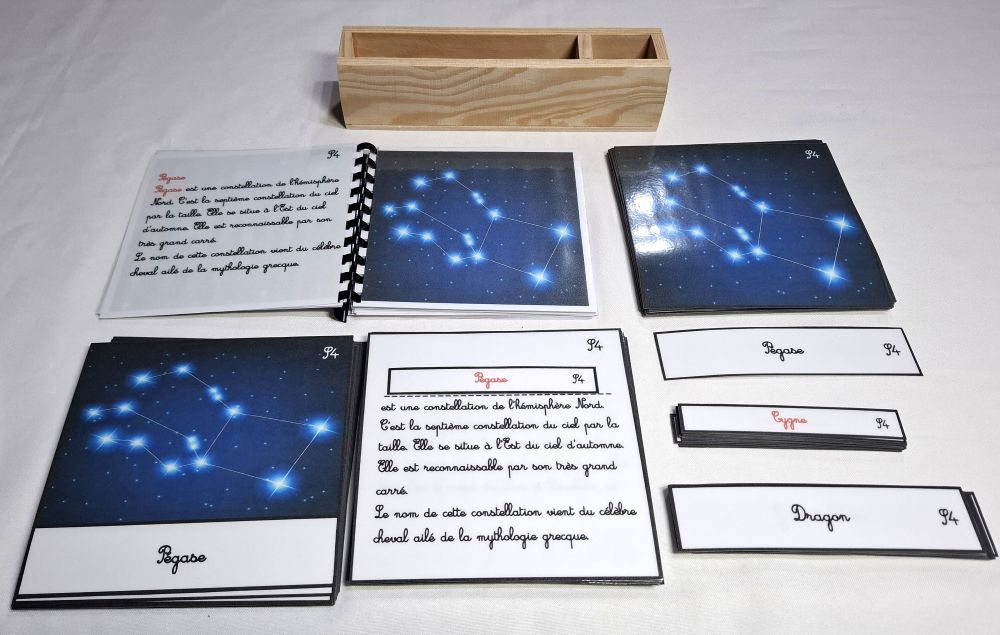 S4
Pégase
Pégase est une constellation de l'hémisphère
Nord. C'est la septième constellation du ciel
par la taille. Elle se situe à l'Est du ciel
d'automne. Elle est reconnaissable par son
très grand carré.
Le nom de cette constellation vient du célèbre
cheval ailé de la mythologie grecque.
S4
S4
Pégase
S4
Pégase S4
est une constellation de l'hémisphère Nord.
C'est la septième constellation du ciel par la
taille. Elle se situe à l'Est du ciel d'automne.
Elle est reconnaissable par son très grand
carré.
Le nom de cette constellation vient du célèbre
cheval ailé de la mythologie grecque.
Pégase S4
Cygne S4
Dragon S4